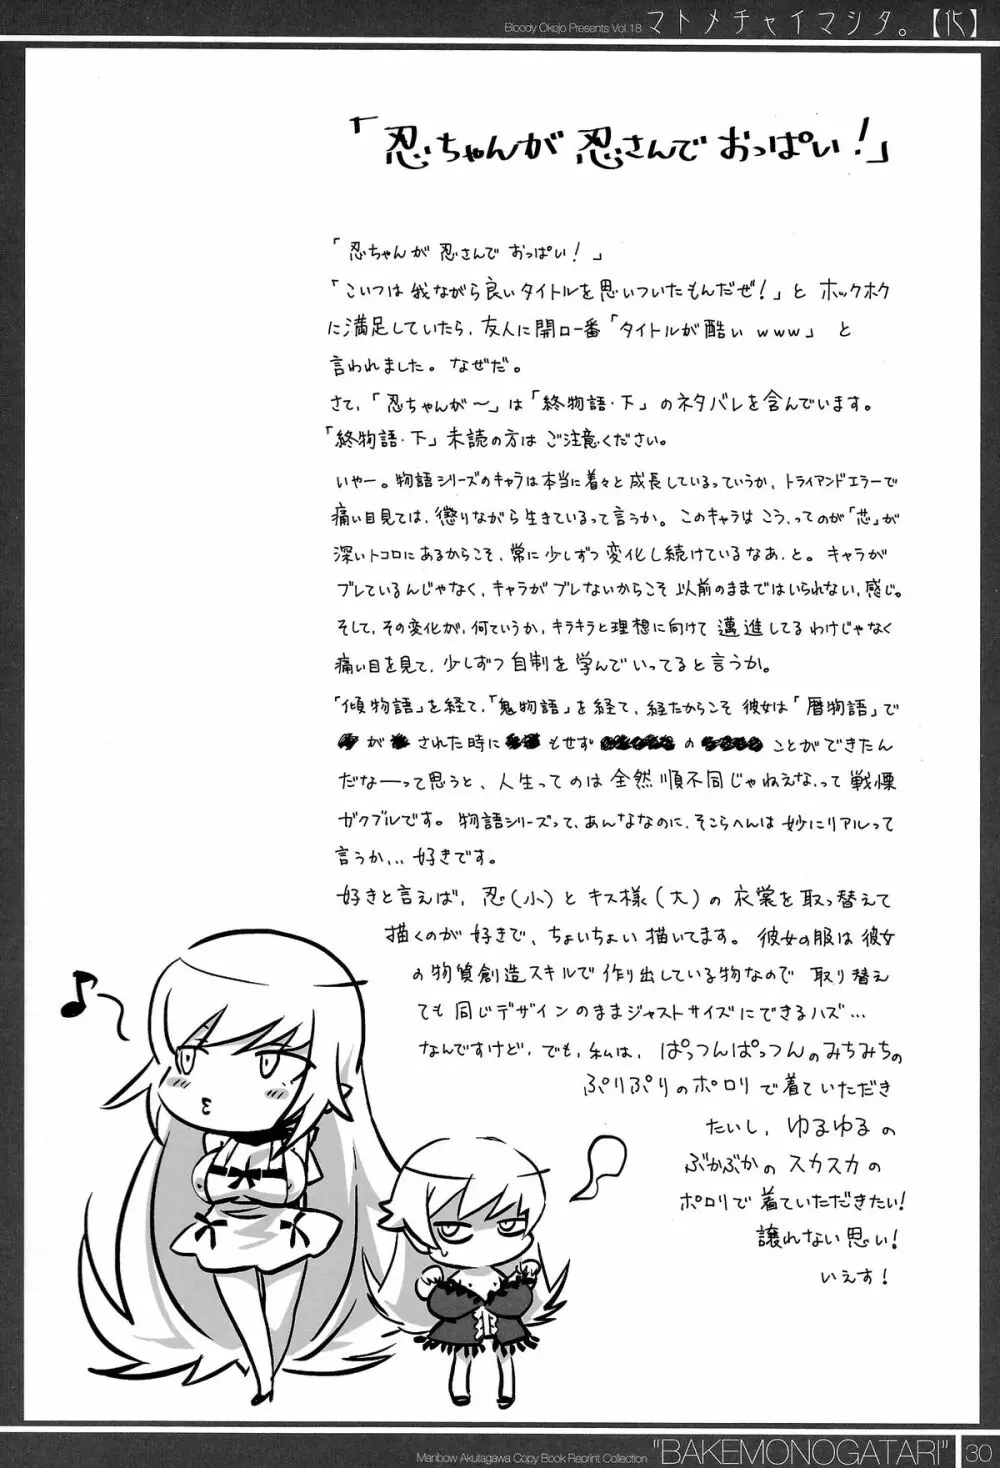 Bloody Okojo Presents Vol.18 マトメチャイマシタ。【化】
「忍ちゃんが 忍さんで おっぱい！」
「忍ちゃんが 忍さんで おっぱい！」
「こいつは我ながら良いタイトルを思いついたもんだぜ！」と ホックホク
に満足していたら、友人に開口一番「タイトルが酷い www」 と
言われました。なぜだ。
さて、「忍ちゃんが〜」は「終物語・下」のネタバレを含んでいます。
「終物語・下」未読の方は ご注意ください。
いやー。物語シリーズのキャラは本当に着々と成長しているっていうか、トライアンドエラーで
痛い目見ては、懲りながら生きているって言うか。このキャラは こう、ってのが「芯」が
深いトコロにあるからこそ、常に少しずつ変化し続けているなあ、と。キャラが
ブレているんじゃなく、キャラがブレないからこそ以前のままではいられない、感じ。
そして、その変化が、何ていうか、キラキラと理想に向けて邁進してるわけじゃなく
痛い目を見て、少しずつ自制を学んでいってると言うか。
「傾物語」を経て、「鬼物語」を経て、経たからこそ 彼女は「暦物語」で
が された時に もせず の ことができたん
だなーって思うと、人生ってのは 全然 順不同じゃねえな、って 戦慄
ガクブルです。物語シリーズって、あんななのに、そこらへんは妙にリアルって
言うか... 好きです。
好きと言えば、忍(小)と キス様(大)の 衣裳を取っ替えて
描くのが好きで、ちょいちょい描いてます。彼女の服は彼女
の物質創造スキルで作り出している物なので 取り替え
ても 同じデザインのままジャストサイズにできるハズ...
なんですけど、でも、私は、ぱっつんぱっつんのみちみちの
ぷりぷりのポロリで着ていただき
たいし、ゆるゆるの
ぶかぶかの スカスカの
ポロリで 着ていただきたい!
譲れない思い!
いえす!
Manbow Akutagawa Copy Book Reprint Collection "BAKEMONOGATARI" 30